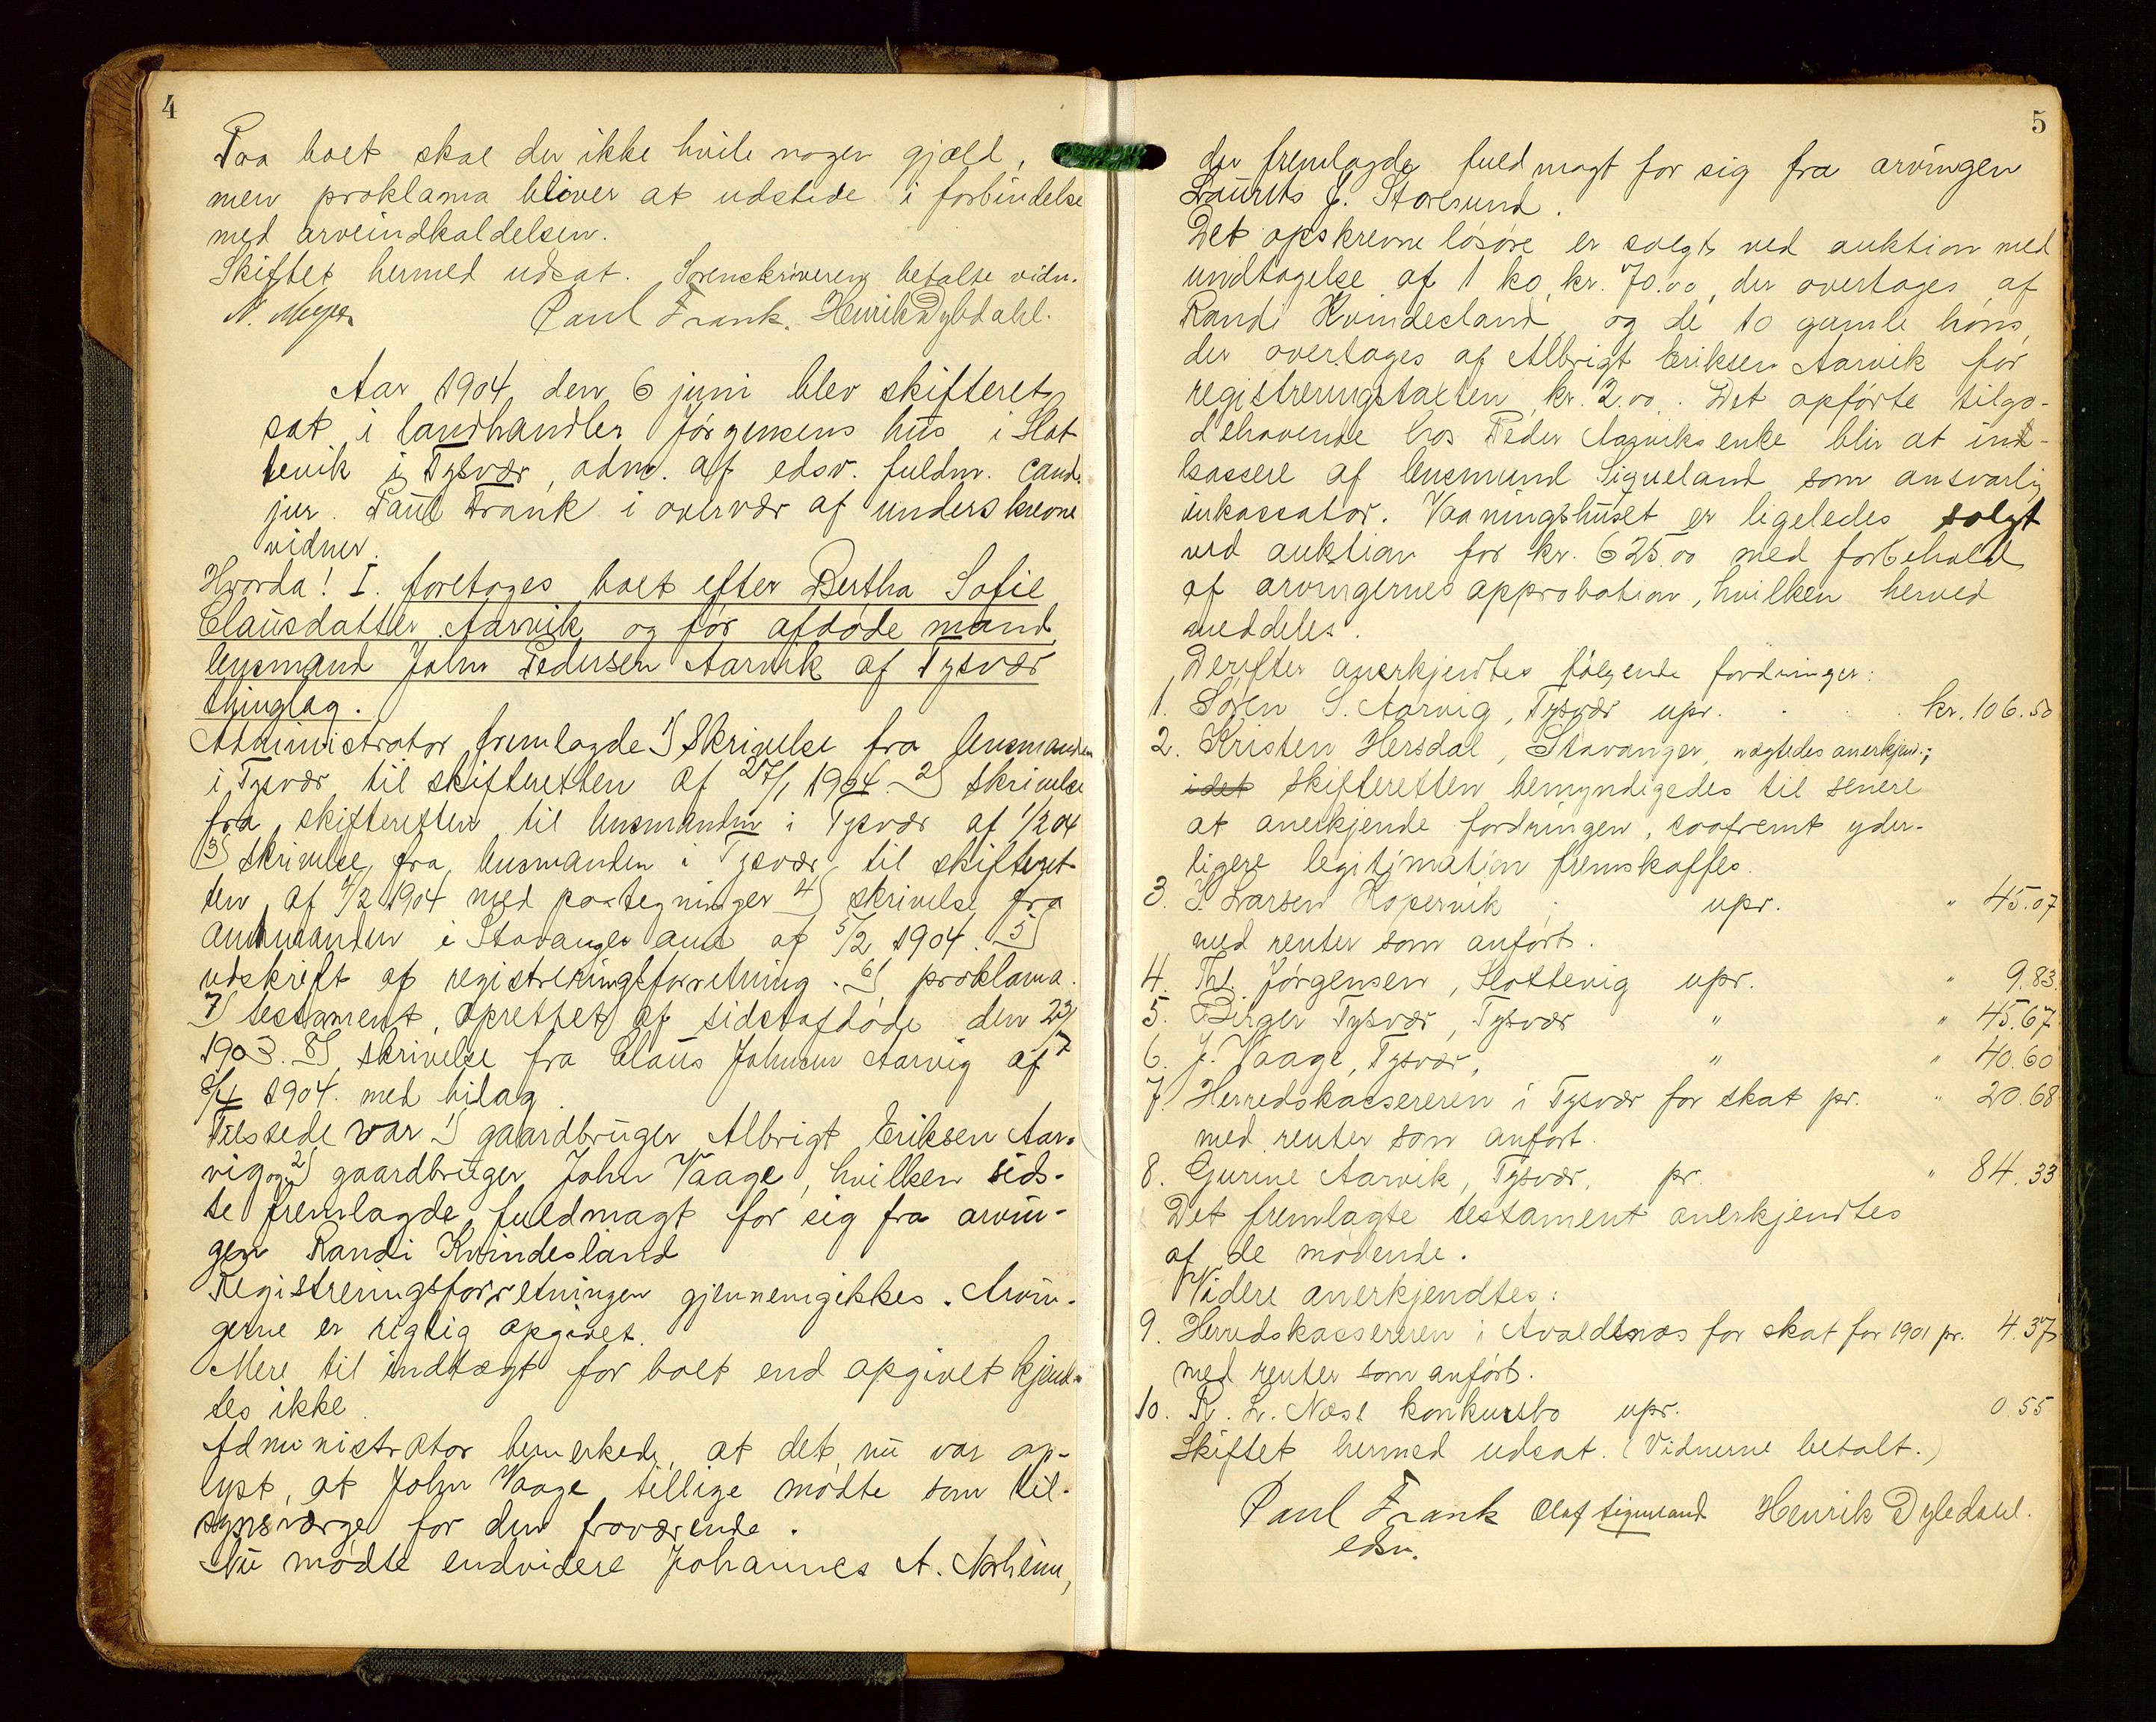 4
Paa boet skal der ikke hvile nogen gjæld,
men proklama bliver at udstede i forbindelse
med arveindkaldelsen.
Skiftet hermed udsat. Sorenskriveren betalte vidn.
N. Meyer Paul Frank. Henrik Dyledahl.
Aar 1904 den 6 juni blev skifteret
sat i landhandler Jørgensens hus i Slot
tevik i Tysvær, adm. af edsv. fuldm. cand.
jur. Paul Frank i overvær af underskrevne
vidner.
Hvorda! I. foretoges boet efter Bertha Sofie
Clausdatter Aarvik og før afdøde mand
lensmand John Pedersen Aarvik af Tysvær
thinglag.
Administrator fremlagde 1) Skrivelse fra lensmanden
i Tysvær til skifteretten af 27/1 1904. 2) skrivelse
fra skifteretten til lensmanden i Tysvær af 1/2 04
3) skrivelse fra lensmanden i Tysvær til skifteret
ten af 4/2 1904 med paategninger 4) skrivelse fra
amtmanden i Stavanger amt af 5/2 1904. 5)
udskrift af registreringsforretning. 6) proklama.
7) testament, oprettet af sidstafdøde den 23/7
1903. 8) skrivelse fra Claus Johnsen Aarvig af
8/4 1904. med bilag.
Tilstede var 1) gaardbruger Albrigt Eriksen Aar-
vig og 2) gaardbruger John Vaage, hvilken sids-
te fremlagde fuldmagt for sig fra arvin-
gen Randi Kvindesland
Registreringsforretningen gjennemgikkes. Arvin-
gerne er rigtig opgivet.
Mere til indtægt for boet end opgivet kjend-
tes ikke.
Administrator bemerkede, at det nu var op-
lyst, at John Vaage tillige mødte som til-
synsværge for den fraværende.
Nu mødte endvidere Johannes A. Norheim,
5
der fremlagde fuldmagt for sig fra arvingen
Laurits J. Storesund.
Det opskrevne løsøre er solgt ved auktion med
undtagelse af 1 ko, kr. 70.00, der overtages af
Randi Kvindesland, og de 10 gamle høns,
der overtages af Albrigt Eriksen Aarvik for
registreringstaxten, kr. 2.00. Det opførte tilgo-
dehavende hos Peder Aarviks enke blir at ind-
kassere af lensmand Sigueland som ansvarlig
inkassator. Vaaningshuset er ligeledes solgt
ved auktion for kr. 625.00 med forbehold
af arvingernes approbation, hvilken herved
meddeles.
Derefter anerkjendtes følgende fordringer:
1. Søren S. Aarvig, Tysvær upr. . . . kr. 106.50
2. Kristen Hersdal, Stavanger, nægtedes anerkjend.;
idet skifteretten bemyndigedes til senere
at anerkjende fordringen, saafremt yder-
ligere legitimation fremskaffes.
3. S. Larsen Kopervik upr. " 45.07
med renter som anført.
4. Th. Jørgensen, Slottevig upr. " 9.83.
5. Birger Tysvær, Tysvær " " 45.67
6. J. Vaage, Tysvær, " " 40.60
7. Herredskassereren i Tysvær for skat pr. " 20.68
med renter som anført.
8. Gurine Aarvik, Tysvær, pr. " 84.33
Det fremlagte testament anerkjendtes
af de mødende.
Videre anerkjendtes:
9. Herredskassereren i Avaldsnæs for skat for 1901 pr. 4.37
med renter som anført.
10. R. L. Næss konkursbo upr. 0.55
Skiftet hermed udsat. (Vidnerne betalt.)
Paul Frank Olaf Sigueland Henrik Dyledahl.
edsv.